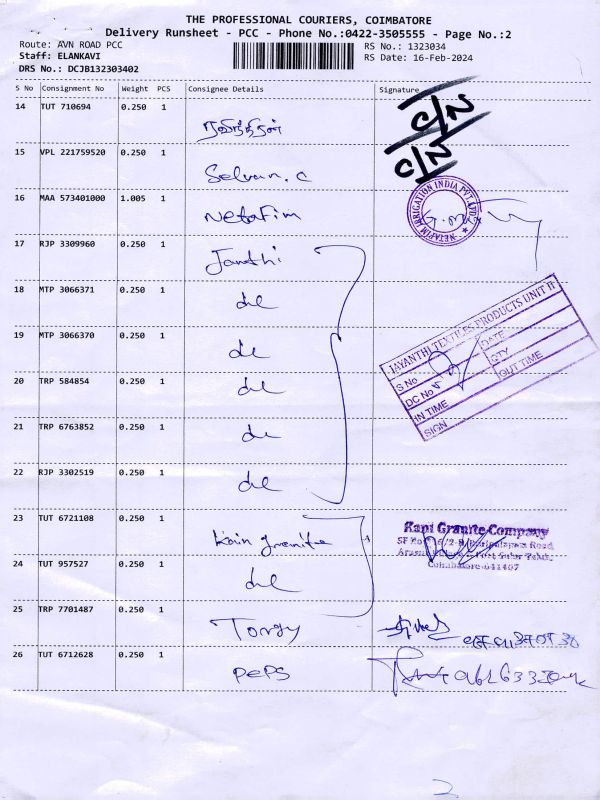 THE PROFESSIONAL COURIERS, COIMBATORE
Delivery Runsheet - PCC - Phone No.:0422-3505555 - Page No.:2
Route: AVN ROAD PCC
RS No.: 1323034
Staff: ELANKAVI
RS Date: 16-Feb-2024
DRS No.: DCJB132303402
S No Consignment No Weight PCS Consignee Details Signature
14 TUT 710694 0.250 1
15 VPL 221759520 0.250 1 Selvan. C
16 MAA 573401000 1.005 1 Netafim
NETAFIM IRRIGATION INDIA PVT. LTD.
17 RJP 3309960 0.250 1 Janthi
18 MTP 3066371 0.250 1 do
19 MTP 3066370 0.250 1 do
20 TRP 584854 0.250 1 do
21 TRP 6763852 0.250 1 do
22 RJP 3302519 0.250 1 do
JAYANTHI TEXTILES PRODUCTS UNIT II
S No DATE
DC No QTY
IN TIME OUT TIME
SIGN
23 TUT 6721108 0.250 1
Granite Company
Coimbatore-641407
24 TUT 957527 0.250 1 do
25 TRP 7701487 0.250 1
26 TUT 6712628 0.250 1 PEPS